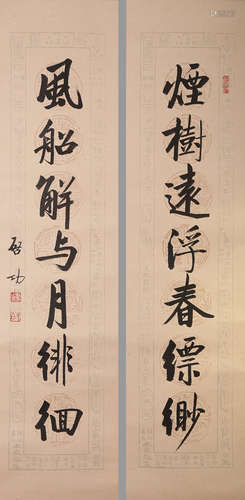 煙樹遠浮春縹緲
風船解与月徘徊
啓功